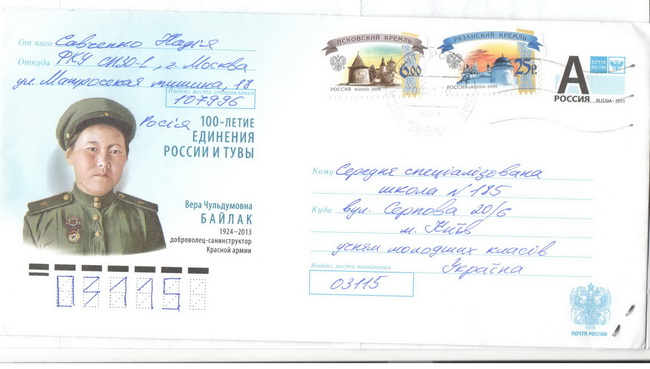 От кого Савченко Надія
Откуда ФКУ СИЗО-1, г. Москва
ул. Матросская тишина, 18
Индекс места отправления
107996
Росія
ПСКОВСКИЙ КРЕМЛЬ
6.00
РОССИЯ RUSSIA 2009
РЯЗАНСКИЙ КРЕМЛЬ
25р.
РОССИЯ RUSSIA 2009
А
РОССИЯ
ПОЧТА РОССИИ
RUSSIA • 2011
100-ЛЕТИЕ
ЕДИНЕНИЯ
РОССИИ И ТУВЫ
Вера Чульдумовна
БАЙЛАК
1924–2013
доброволец-санинструктор
Красной армии
03115
Кому Середня спеціалізована
школа N 185
Куда вул. Серпова 20/6
м. Київ
учням молодших класів
Україна
Индекс места назначения
03115
ПОЧТА РОССИИ